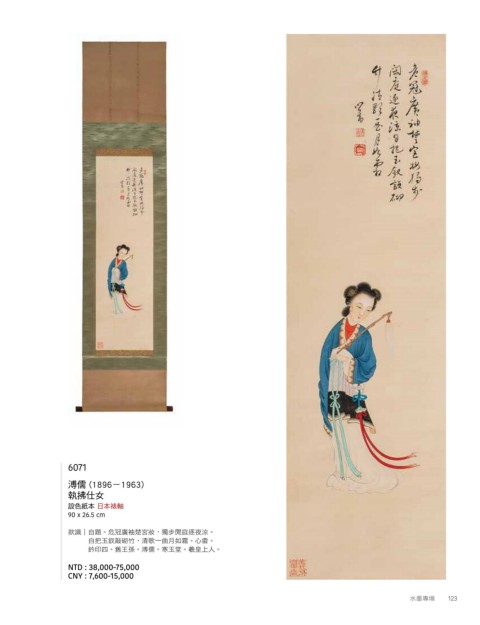 危冠廣袖楚宮妝獨步
閒庭逐夜涼自把玉釵敲砌
竹清歌一曲月如霜
心畬
6071
溥儒（1896－1963）
執拂仕女
設色紙本 日本裱軸
90 x 26.5 cm
款識｜自題。危冠廣袖楚宮妝，獨步閒庭逐夜涼。
自把玉釵敲砌竹，清歌一曲月如霜。心畬。
鈐印四。舊王孫、溥儒、寒玉堂、羲皇上人。
NTD : 38,000-75,000
CNY : 7,600-15,000
水墨專場 123